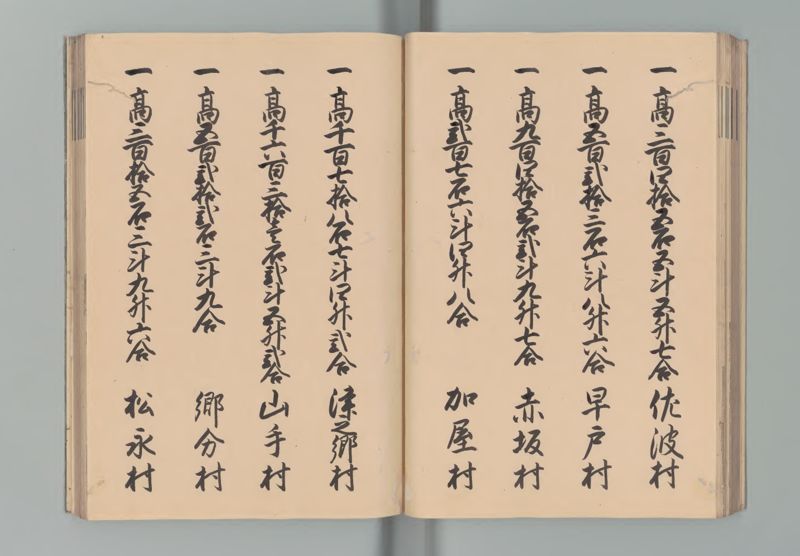 一高三百四拾五石五斗五升七合 佐波村
一高五百弐拾三石六斗八升六合 早戸村
一高九百四拾五石弐斗九升七合 赤坂村
一高弐百七石六斗四升八合 加屋村
一高千百七拾八石七斗四升弐合 津之郷村
一高千六百三拾壱石弐斗五升弐合 山手村
一高五百弐拾弐石三斗九合 郷分村
一高三百拾五石三斗九升六合 松永村